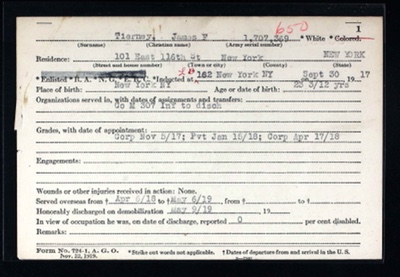 650
1
Tierney, James F 1,707,369 * White * Colored.
(Surname) (Christian name) (Army serial number)
Residence: 101 East 116th St New York NEW YORK
(Street and house number) (Town or city) (County) (State)
* Enlisted * R. A. * N. G. * E. R. C. * Inducted at LB 162 New York NY Sept 30 19 17
Place of birth: New York NY Age or date of birth: 23 3/12 yrs
Organizations served in, with dates of assignments and transfers:
Co M 307 Inf to disch
Grades, with date of appointment:
Corp Nov 5/17; Pvt Jan 15/18; Corp Apr 17/18
Engagements:
Wounds or other injuries received in action: None.
Served overseas from † Apr 6/18 to † May 6/19, from † to †
Honorably discharged on demobilization May 9/19 19
In view of occupation he was, on date of discharge, reported 0 per cent disabled.
Remarks:
Form No. 724-1, A. G. O. * Strike out words not applicable. † Dates of departure from and arrival in the U. S.
Nov. 22, 1919.